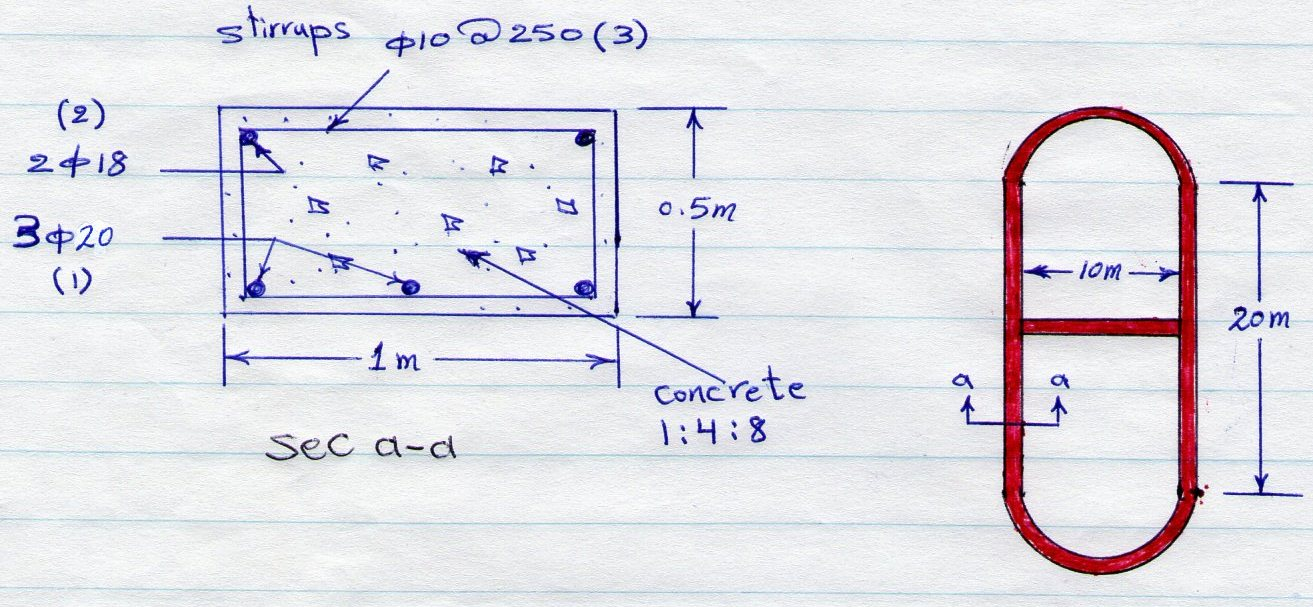 stirrups φ10@250(3)
(2)
2φ18
3φ20
(1)
0.5m
1m
concrete
1:4:8
sec a-a
10m
20m
a a